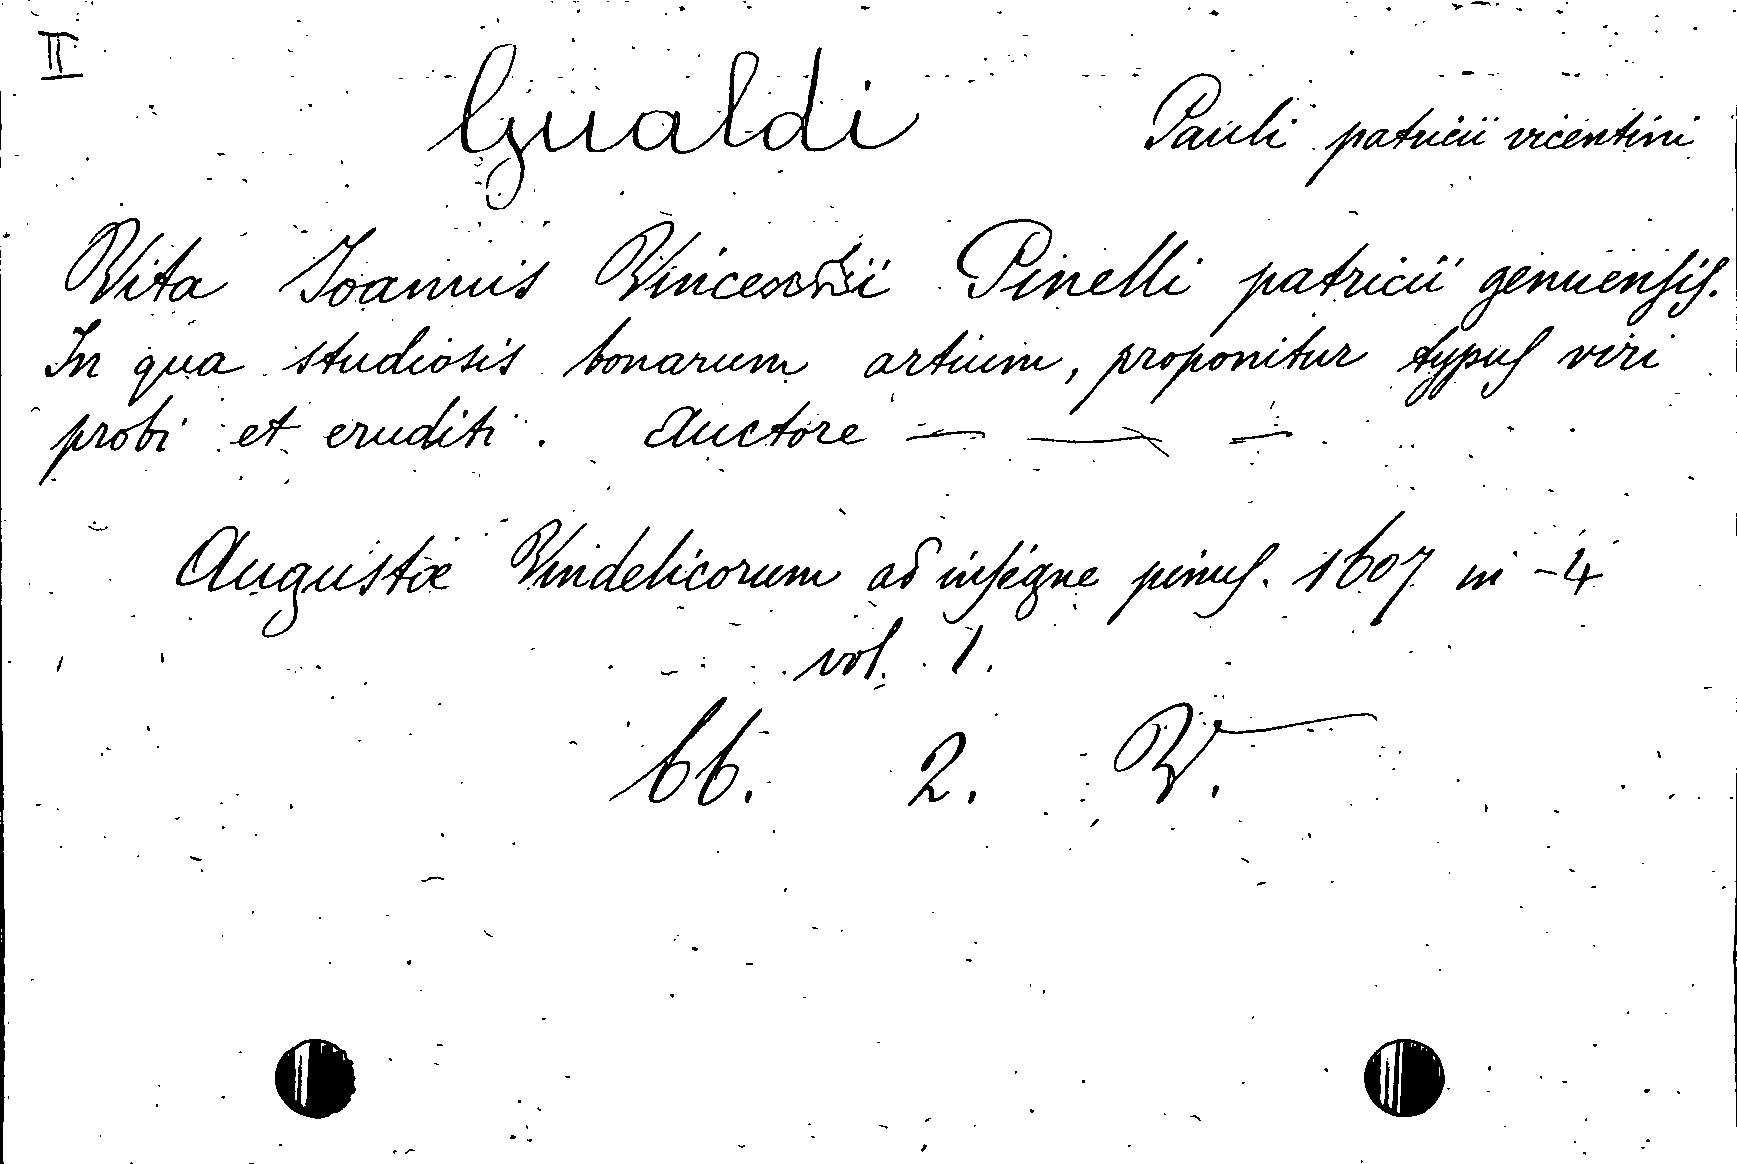 II
Gualdi Pauli patricii vicentini
Vita Joannis Vincentii Pinelli patricii genuensis.
In qua studiosis bonarum artium, proponitur typus viri
probi et eruditi. Auctore — — —
Augustæ Vindelicorum ad insigne pinus. 1607 in -4
vol. 1.
66. 2. V.